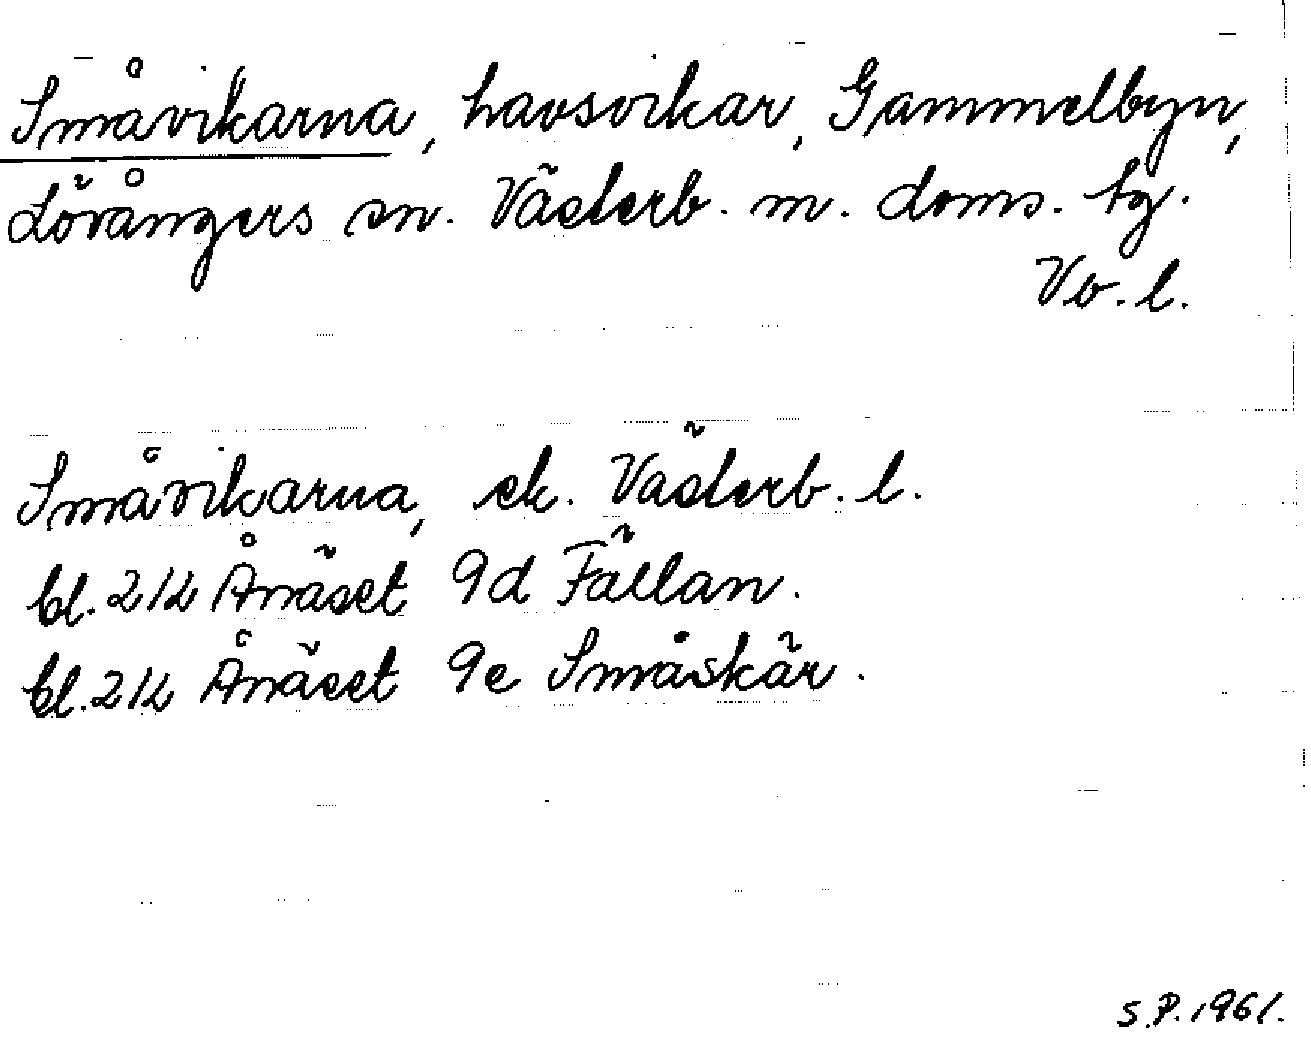 Småvikarna, havsvikar, Gammelbyn,
Lövångers sn. Västerb. m. doms. tg.
Vb. l.
Småvikarna, ek. Västerb. l.
bl. 21L Ånäset 9d Fällan.
bl. 21L Ånäset 9e Småskär.
S.P. 1961.